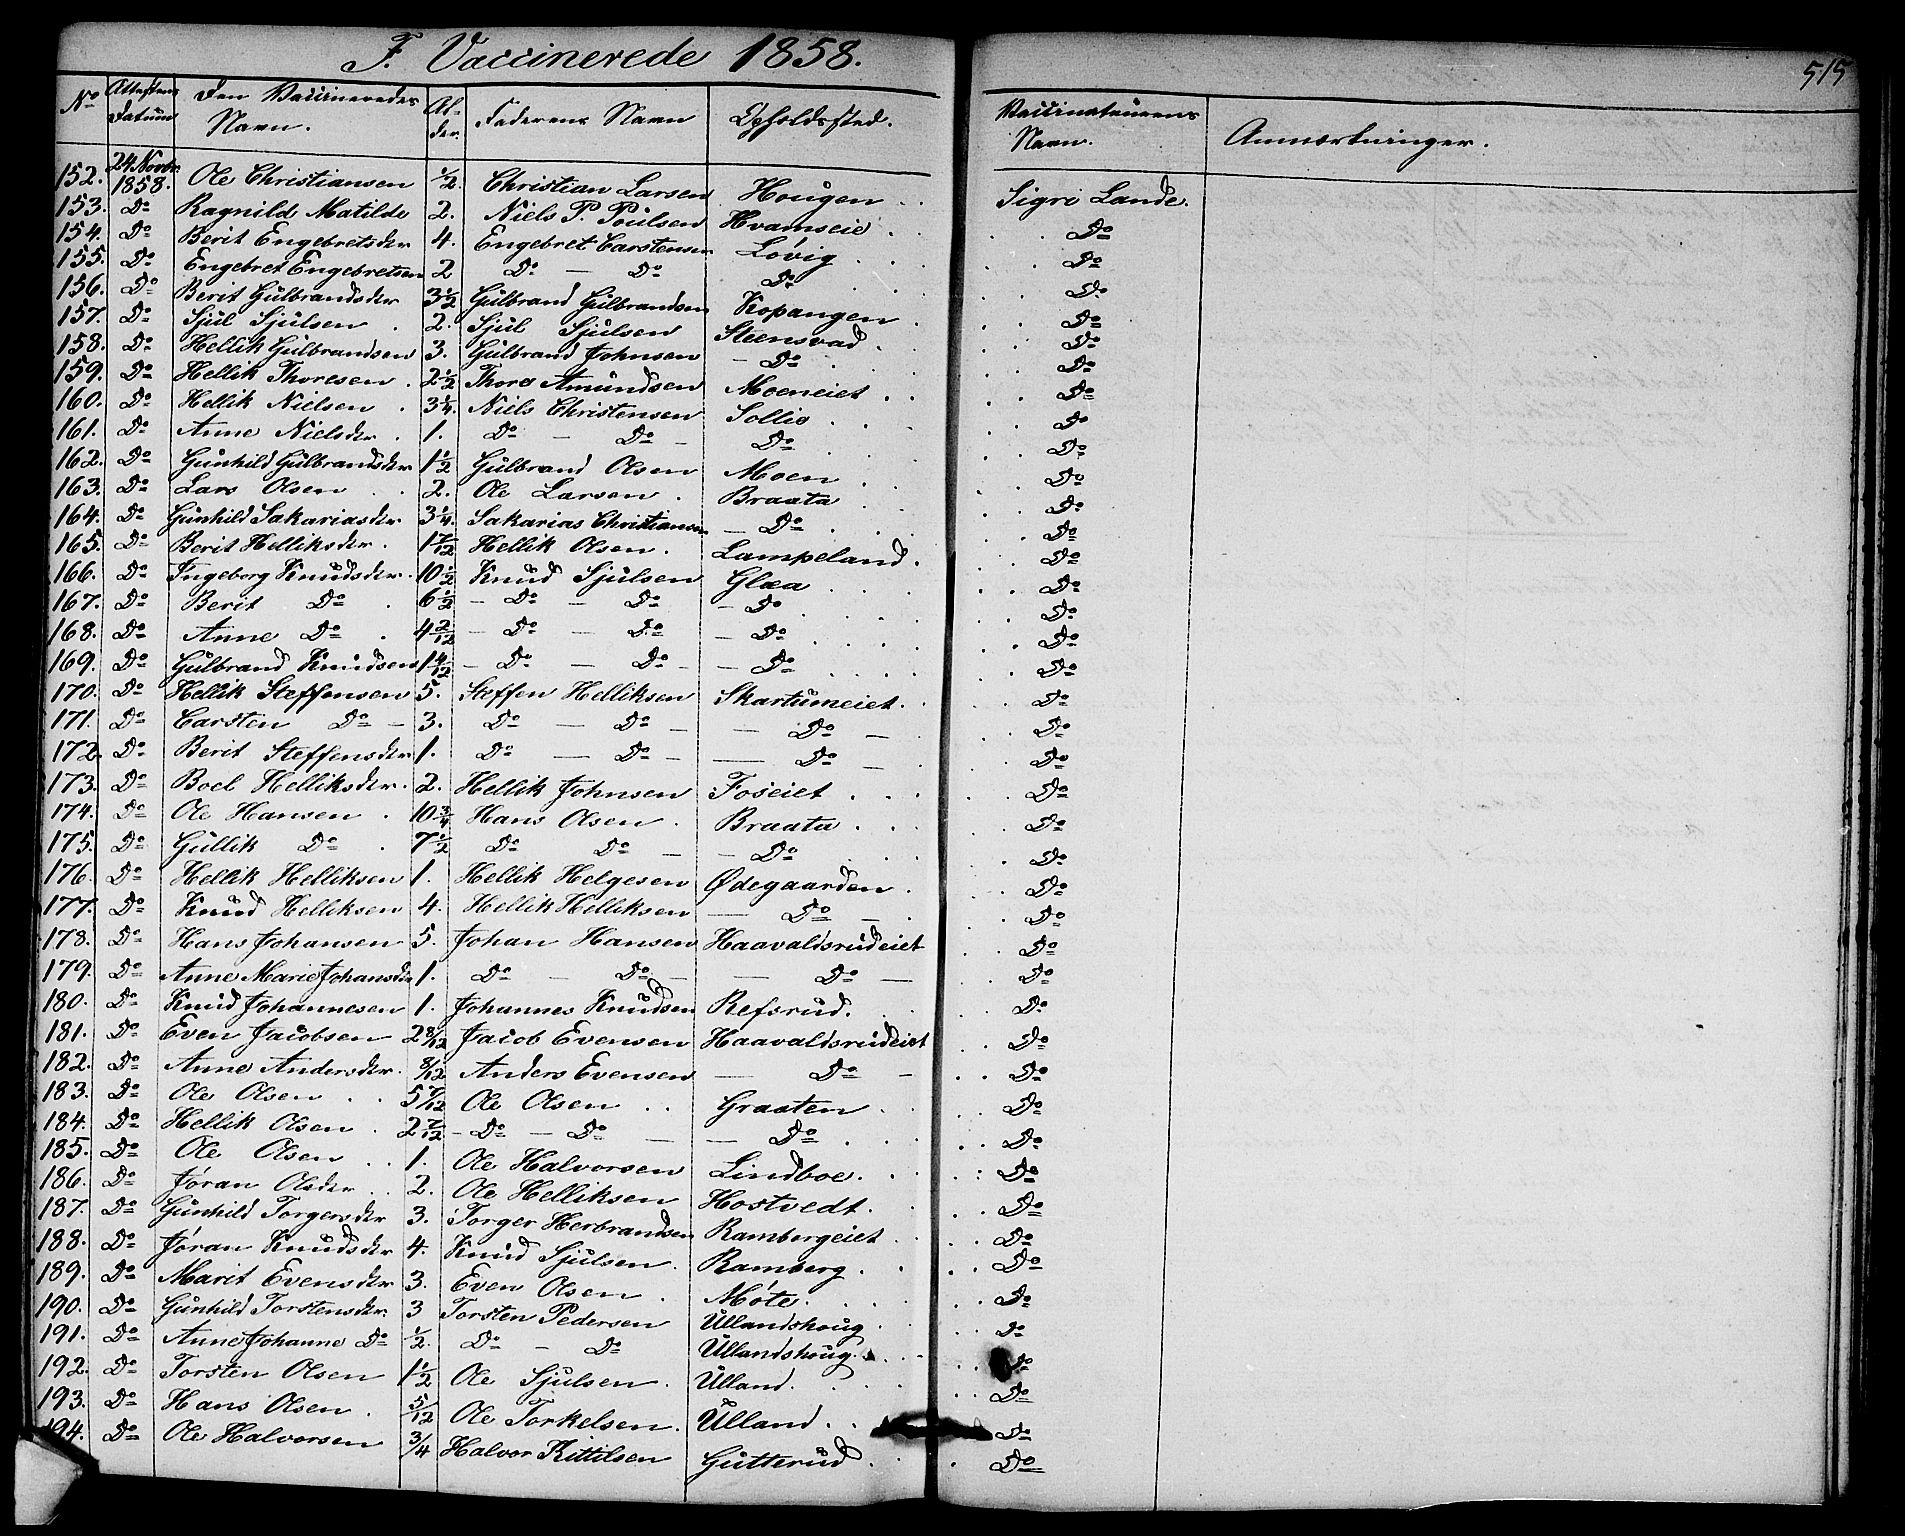 F. Vaccinerede 1858.
515
No | Attestens Datum | Den Vaccineredes Navn. | Alder. | Faderens Navn | Opholdssted. | Vaccinateurens Navn. | Anmærkninger.
152. 24 Novbr 1858. Ole Christiansen ½. Christian Larsen Hougen . . Sigri Lande.
153. Do Ragnild Matilde 2. Niels P. Poulsen Hvamseie . . Do
154. Do Berit Engebretsder 4. Engebret Carstensen Løvig . . Do
155. Do Engebret Engebretsen 2 Do — Do Do . . Do
156. Do Berit Gulbrandsder 3½ Gulbrand Gulbrandsen Kopangen . . Do
157. Do Sjul Sjulsen . 2. Sjul Sjulsen Steensvad . . Do
158. Do Hellik Gulbrandsen 3. Gulbrand Johnsen — Do . . Do
159. Do Hellik Thoresen . 2½ Thore Amundsen Moeneiet . . Do
160. Do Hellik Nielsen . 3¼. Niels Christensen Sollie . . Do
161. Do Anne Nielsder . 1. Do — Do — Do . . Do
162. Do Gunhild Gulbrandsder 1½ Gulbrand Olsen Moen . . Do
163. Do Lars Olsen . . 2. Ole Larsen . Braata . . Do
164. Do Gunhild Sakariasder 3¼. Sakarias Christiansen — Do . . Do
165. Do Berit Helliksder . 1 7/12 Hellik Olsen . Lampeland . . Do
166. Do Ingeborg Knudsder . 10½ Knud Sjulsen Glæa . . Do
167. Do Berit Do . 6½ — Do — Do — Do . . Do
168. Do Anne Do . 4 2/12 — Do — Do — Do . . Do
169. Do Gulbrand Knudsen 1 4/12 — Do — Do — Do . . Do
170. Do Hellik Steffensen 5. Steffen Helliksen Skartumeiet . . Do
171. Do Carsten Do — 3. Do — Do — — Do — . Do
172. Do Berit Steffensder 1. Do — Do — — Do — . Do
173. Do Boel Helliksder . 2. Hellik Johnsen Foseiet . . Do
174. Do Ole Hansen . 10¾ Hans Olsen . Braata . . Do
175. Do Gullik Do . 7½ Do Do — — Do . . Do
176. Do Hellik Helliksen 1. Hellik Helgesen Ødegaarden . . Do
177. Do Knud Helliksen 4. Hellik Helliksen — Do — . Do
178. Do Hans Johansen 5. Johan Hansen Haavaldsrudeiet . Do
179. Do Anne Marie Johansder 1. Do — Do — — Do — . Do
180. Do Knud Johannesen 1. Johannes Knudsen Refsrud. . . Do
181. Do Even Jacobsen 2 8/12 Jacob Evensen Haavaldsrudeiet . . Do
182. Do Anne Andersder . 8/12 Anders Evensen — Do — . . Do
183. Do Ole Olsen . . 5 7/12 Ole Olsen . . Graaten . . Do
184. Do Hellik Olsen . 2 7/12 — Do — Do — — Do . . Do
185. Do Ole Olsen . . 1. Ole Halvorsen Lindboe . . Do
186. Do Jøran Olsder . . 2. Ole Helliksen Hostvedt . . Do
187. Do Gunhild Torgersder 3. Torger Herbrandsen Rambergeiet . . Do
188. Do Jøran Knudsder 4. Knud Sjulsen . Ramberg . . Do
189. Do Marit Evensder 3. Even Olsen . Møte . . Do
190. Do Gunhild Torstensder 3 Torsten Pedersen Ullandshoug . . Do
191. Do Anne Johanne Do ½. Do — Do Ullandshoug . . Do
192. Do Torsten Olsen 1½ Ole Sjulsen . Ulland . . Do
193. Do Hans Olsen . 5/12 Ole Torkelsen . Ulland . . Do
194. Do Ole Halvorsen 3/4 Halvor Kittilsen Gutterud . . Do